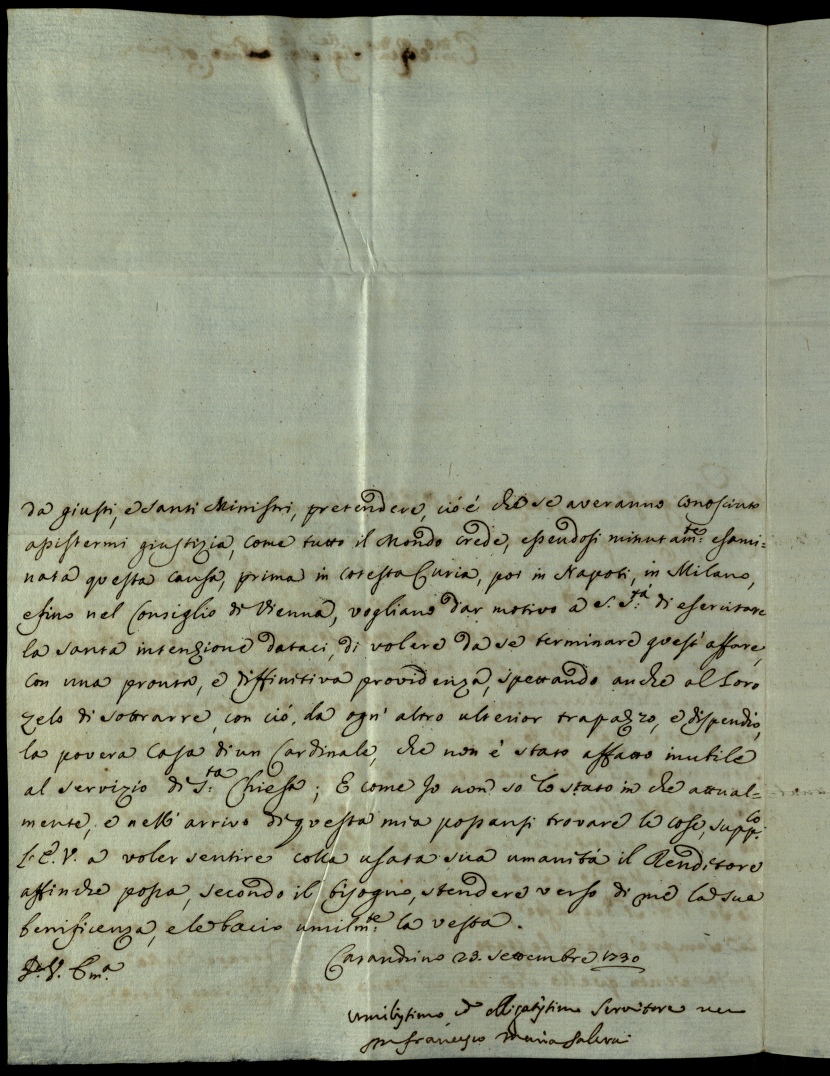 da giusti, e santi Ministri, pretendere, cioé che se averanno conosciuto
assistermi giustizia, come tutto il Mondo crede, essendosi minutam.te esami-
nata questa causa, prima in cotesta Curia, poi in Napoli, in Milano,
e fino nel Consiglio di Vienna, vogliano dar motivo a S. S.tá di esercitare
la santa intenzione dataci, di volere da se terminare quest'affare,
con una pronta, e diffinitiva providenza, spettando anche al loro
zelo di sottrarre, con ció, da ogn'altro ulterior trapazzo, e dispendio,
la povera Casa di un Cardinale, che non é stato affatto inutile
al servizio di S.ta Chiesa; E come Io non so lo stato in che attual-
mente, e nell'arrivo di questa mia possansi trovare le cose, supp.co
l'E.V. a voler sentire colla usata sua umanitá il Renditore
affinche possa, secondo il bisogno, stendere verso di me la sua
beneficenza, e le bacio umilm.te la vesta.
Casandrino 23. Settembre 1730
D. V. Em.a
Umilissimo ed obligatissimo Servitore vero
Francesco Maria